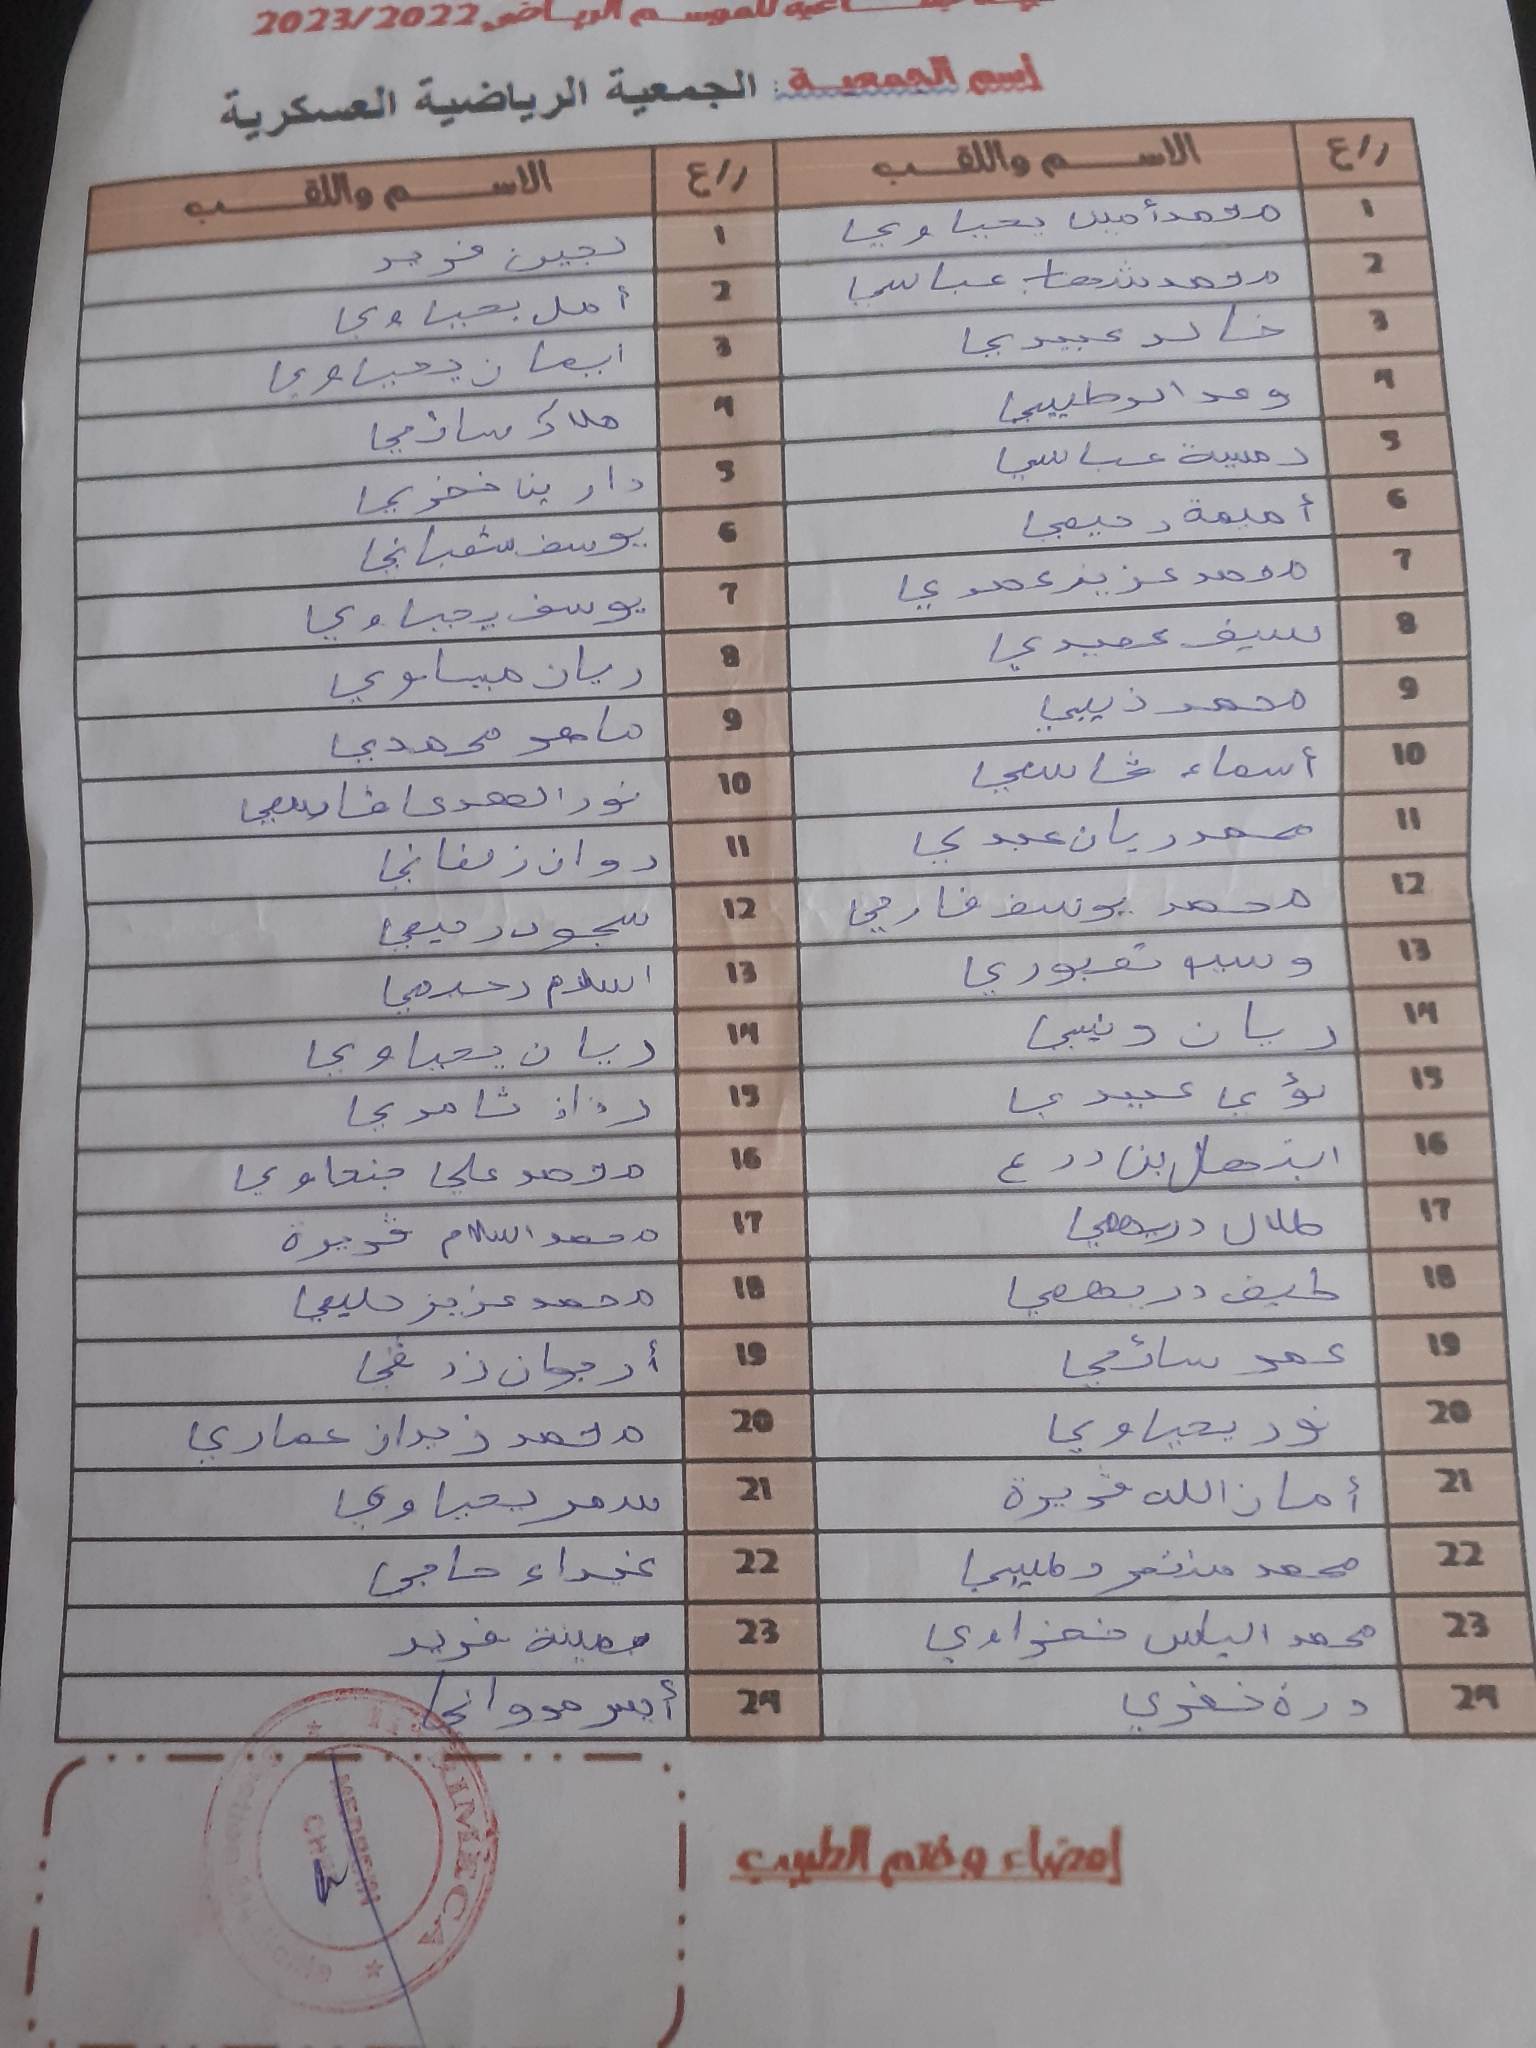 للموسم الرياضي 2023/2022
إسم الجمعية : الجمعية الرياضية العسكرية
ر/ع الاسم واللقب ر/ع الاسم واللقب
1 محمد أمين يحياوي 1 لجين فريد
2 محمد شهاب عباسي 2 أمل يحياوي
3 خالد عبيدي 3 ايمان يحياوي
4 وطيبي 4 ملاك سائمي
5 عباسي 5 دارينا خضري
6 أميمة رحيمي 6 يوسف شعباني
7 محمد عزيز عمدي 7 يوسف يحياوي
8 سيف عميدي 8 ريان ميساوي
9 محمد ذيبي 9 ماهر محمدي
10 أسماء قاسمي 10 نور الهدى قاسمي
11 محمد ريان عبدي 11 روان زلفاني
12 محمد يوسف فارمي 12 سجود رحيمي
13 13 اسلام رحيمي
14 ريان ونيبي 14 ريان يحياوي
15 لؤي عبيدي 15 ثامري
16 ابتهال بن درع 16 محمد علي جنحاوي
17 طلال دريهمي 17 محمد اسلام قويرة
18 طيف دريهمي 18 محمد عزيز حليمي
19 عمر سائمي 19 أرجوان
20 نور يحياوي 20 محمد زيدان عماري
21 أمان الله قويرة 21 سمر يحياوي
22 محمد منتصر وطيبي 22 غيداء حاجي
23 محمد الياس خضراوي 23 فريد
24 درة خضري 24 أيسر مرواني
إمضاء وختم الطبيب